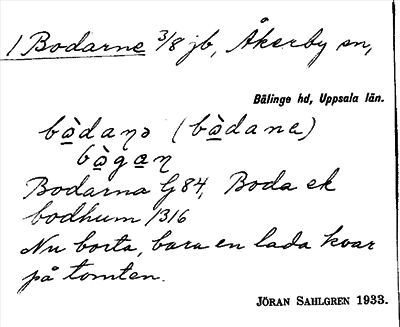 1 Bodarne 3/8 jb, Åkerby sn,
Bälinge hd, Uppsala län.
bȯ̲daṇə (bȯ̲dana)
bȯ̲gaṇ
Bodarna G 84, Boda ek
bodhum 1316
Nu borta, bara en lada kvar
på tomten.
JÖRAN SAHLGREN 1933.